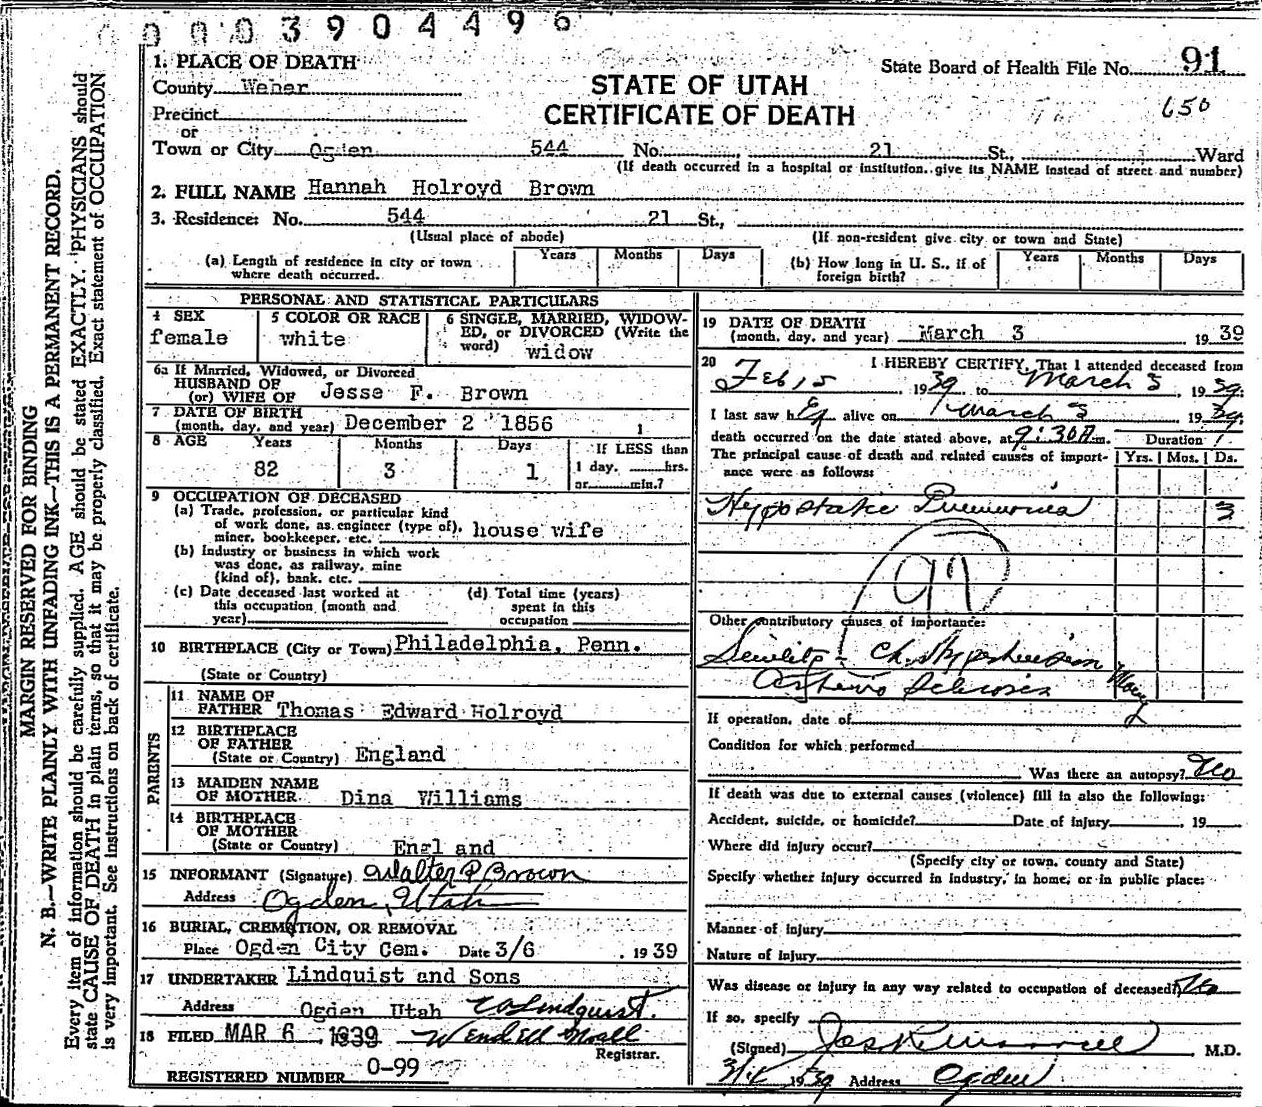 0003904496
MARGIN RESERVED FOR BINDING
N. B.—WRITE PLAINLY WITH UNFADING INK—THIS IS A PERMANENT RECORD.
Every item of information should be carefully supplied. AGE should be stated EXACTLY. PHYSICIANS should
state CAUSE OF DEATH in plain terms, so that it may be properly classified. Exact statement of OCCUPATION
is very important. See instructions on back of certificate.
1. PLACE OF DEATH
State Board of Health File No. 91
County Weber
STATE OF UTAH
650
Precinct
CERTIFICATE OF DEATH
or
Town or City Ogden 544 No. 21 St., Ward
(If death occurred in a hospital or institution, give its NAME instead of street and number)
2. FULL NAME Hannah Holroyd Brown
3. Residence: No. 544 21 St.,
(Usual place of abode) (If non-resident give city or town and State)
(a) Length of residence in city or town where death occurred. Years Months Days
(b) How long in U. S., if of foreign birth? Years Months Days
PERSONAL AND STATISTICAL PARTICULARS
4 SEX female
5 COLOR OR RACE white
6 SINGLE, MARRIED, WIDOW-
ED, or DIVORCED (Write the
word) widow
6a If Married, Widowed, or Divorced
HUSBAND OF
(or) WIFE OF Jesse F. Brown
7 DATE OF BIRTH
(month, day, and year) December 2 1856
8 AGE Years Months Days If LESS than
82 3 1 1 day, hrs.
or min.?
9 OCCUPATION OF DECEASED
(a) Trade, profession, or particular kind
of work done, as engineer (type of),
miner, bookkeeper, etc. house wife
(b) Industry or business in which work
was done, as railway, mine
(kind of), bank, etc.
(c) Date deceased last worked at
this occupation (month and
year)
(d) Total time (years)
spent in this
occupation
10 BIRTHPLACE (City or Town) Philadelphia, Penn.
(State or Country)
PARENTS
11 NAME OF
FATHER Thomas Edward Holroyd
12 BIRTHPLACE
OF FATHER
(State or Country) England
13 MAIDEN NAME
OF MOTHER Dina Williams
14 BIRTHPLACE
OF MOTHER
(State or Country) Engl and
15 INFORMANT (Signature) Walter P Brown
Address Ogden, Utah
16 BURIAL, CREMATION, OR REMOVAL
Place Ogden City Cem. Date 3/6 , 1939
17 UNDERTAKER Lindquist and Sons
Address Ogden Utah Lindquist.
18 FILED MAR 6 , 1939 Wendell
Registrar.
REGISTERED NUMBER 0-99
19 DATE OF DEATH
(month, day, and year) March 3 1939
20 I HEREBY CERTIFY, That I attended deceased from
Feb 15 1939 to March 3, 1939.
I last saw her alive on March 3 1939.
death occurred on the date stated above, at 9:30 A m. Duration
The principal cause of death and related causes of import-
ance were as follows: Yrs. Mos. Ds.
Hypostatic Pneumonia 3
97
Other contributory causes of importance:
Senility - Ch. Hypertension
Arterio Sclerosis Many
If operation, date of
Condition for which performed
Was there an autopsy? No
If death was due to external causes (violence) fill in also the following:
Accident, suicide, or homicide? Date of injury , 19
Where did injury occur?
(Specify city or town, county and State)
Specify whether injury occurred in industry, in home, or in public place:
Manner of injury
Nature of injury
Was disease or injury in any way related to occupation of deceased? No
If so, specify
(Signed) , M.D.
1939 Address Ogden